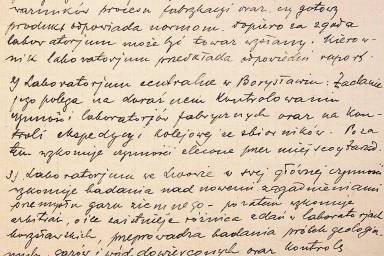 warunków procesu fabrykacji oraz, czy gotowy
produkt odpowiada normom. Dopiero za zgodą
laboratorjum może być towar wysłany. Kierow-
nik laboratorjum przedkłada odpowiedni raport.
2) Laboratorjum centralne w Borysławiu. Zadanie
jego polega na doraźnem kontrolowaniu
czynności laboratorjów fabrycznych oraz na kon-
troli ekspedycji kolejowej ze zbiorników. Poza
tem wykonuje czynności zlecone przez miejscowy Zarząd.
3) Laboratorjum we Lwowie w swej głównej czynności
wykonuje badania nad nowemi zagadnieniami
przemysłu gazu ziemnego - pozatem wykonuje
arbitraż, o ile zaistnieje różnica zdań w laboratorjach
borysławskich, przeprowadza badania próbek geologicz-
nych, gazów i wód dowierconych oraz kontrolę